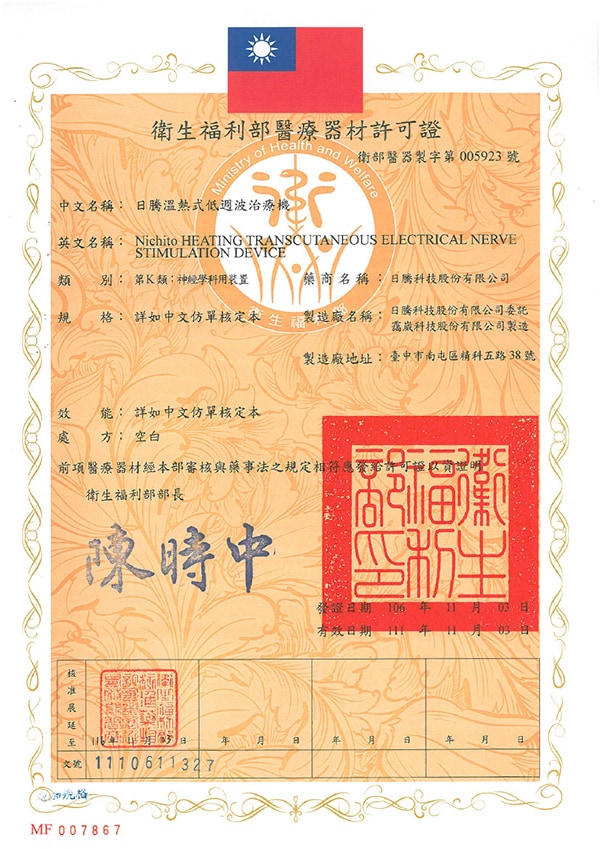 衛生福利部醫療器材許可證
衛部醫器製字第 005923 號
Ministry of Health and Welfare
中文名稱：日騰溫熱式低週波治療機
英文名稱：Nichito HEATING TRANSCUTANEOUS ELECTRICAL NERVE
STIMULATION DEVICE
類　別：第K類：神經學科用裝置　藥商名稱：日騰科技股份有限公司
規　格：詳如中文仿單核定本　製造廠名稱：日騰科技股份有限公司委託
靄崴科技股份有限公司製造
製造廠地址：臺中市南屯區精科五路38號
效　能：詳如中文仿單核定本
處　方：空白
前項醫療器材經本部審核與藥事法之規定相符應發給許可證以資證明
衛生福利部部長
陳時中
衛生福利部印
發證日期 106 年 11 月 03 日
有效日期 111 年 11 月 03 日
核准展延至 116年 11月 03日 年 月 日 年 月 日 年 月 日
文號 1110611327
MF 007867